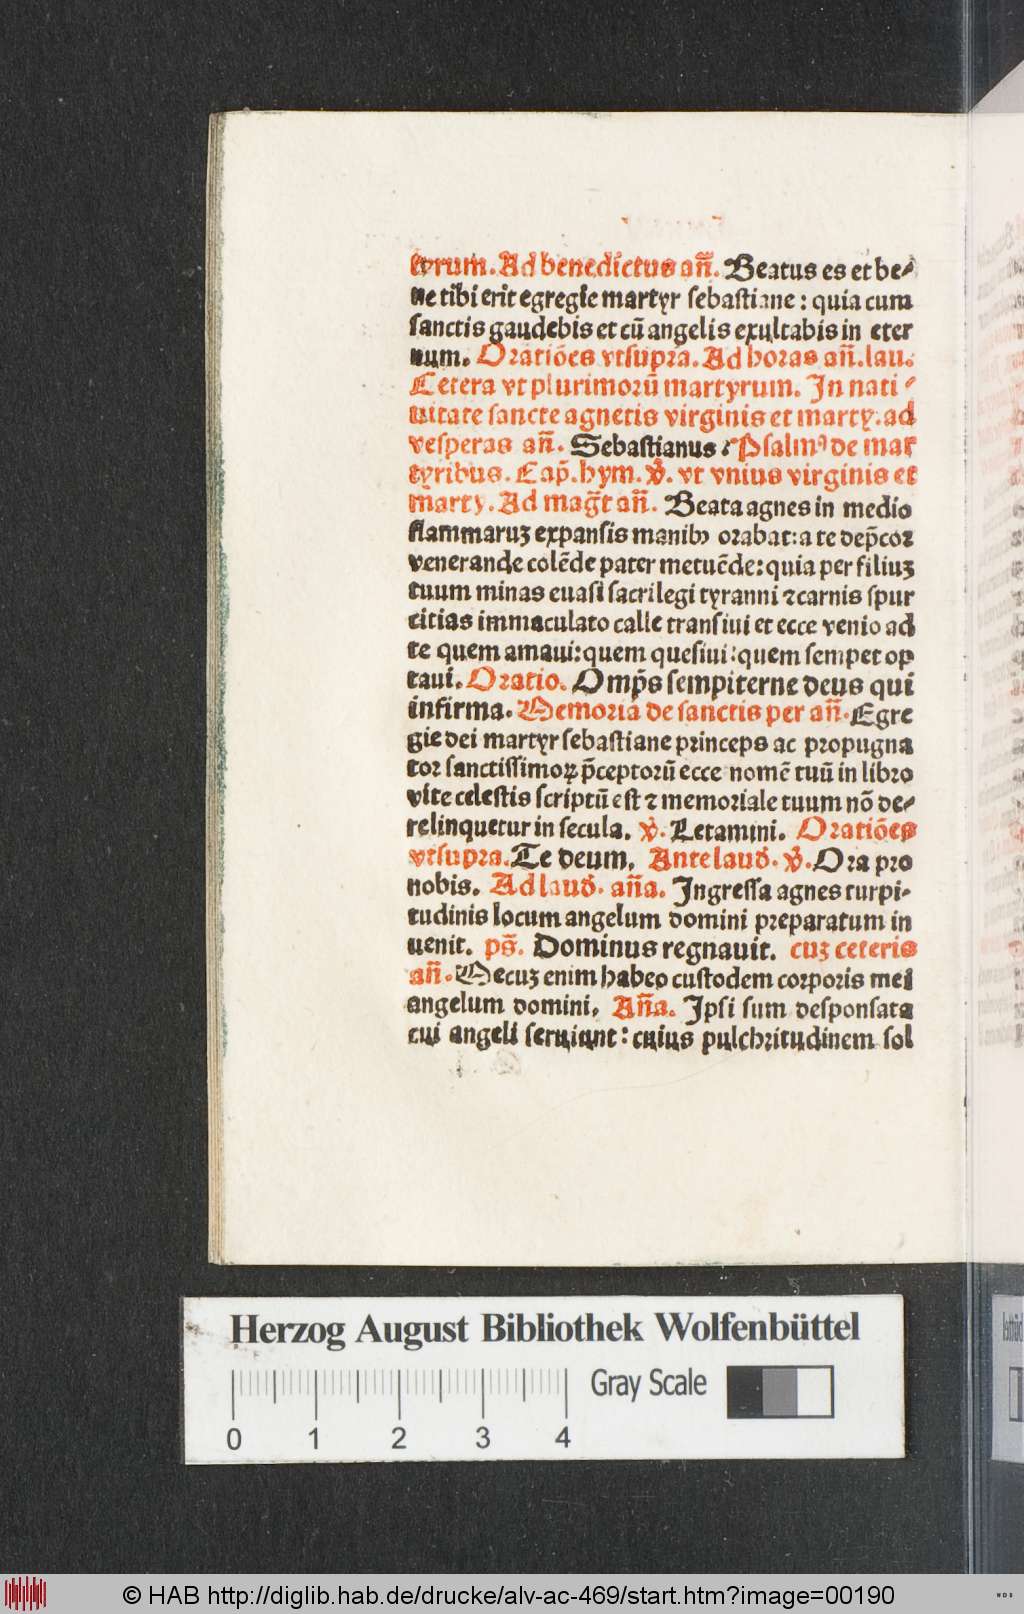 tyrum. Ad benedictus añ. Beatus es et be⸗
ne tibi erit egregie martyr sebastiane : quia cum
sanctis gaudebis et cū angelis exultabis in eter
num. Oratiões vtsupra. Ad horas añ. lau.
Cetera vt plurimorū martyrum. In nati⸗
uitate sancte agnetis virginis et marty. ad
vesperas añ. Sebastianus : Psalmꝰ de mar
tyribus. Cap̄. hym. v̄. vt vnius virginis et
marty. Ad mag̃t añ. Beata agnes in medio
flammaruʒ expansis manibꝰ orabat: a te dep̄cor
venerande colēde pater metuēde: quia per filiuʒ
tuum minas euasi sacrilegi tyranni ⁊ carnis spur
citias immaculato calle transiui et ecce venio ad
te quem amaui: quem quesiui: quem semper op
taui. Oratio. Omp̄s sempiterne deus qui
infirma. Memoria de sanctis per añ. Egre
gie dei martyr sebastiane princeps ac propugna
tor sanctissimoꝝ p̄ceptorū ecce nomē tuū in libro
vite celestis scriptū est ⁊ memoriale tuum nō de⸗
relinquetur in secula. v̄. Letamini. Oratiões
vtsupra. Te deum. Ante laud̄. v̄. Ora pro
nobis. Ad laud̄. aña. Ingressa agnes turpi⸗
tudinis locum angelum domini preparatum in
uenit. ps̄. Dominus regnauit. cuʒ ceteris
añ. Mecuʒ enim habeo custodem corporis mei
angelum domini. Aña. Ipsi sum desponsata
cui angeli seruiunt : cuius pulchritudinem sol
Herzog August Bibliothek Wolfenbüttel
Gray Scale
0 1 2 3 4
© HAB http://diglib.hab.de/drucke/alv-ac-469/start.htm?image=00190